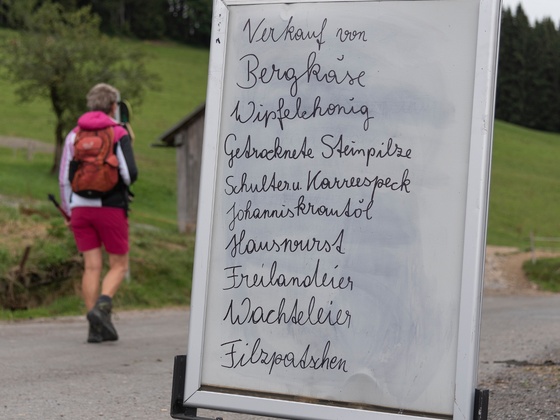 Verkauf von
Bergkäse
Wipfelehonig
Getrocknete Steinpilze
Schulter u. Karreespeck
Johanniskrautöl
Hauswurst
Freilandeier
Wachteleier
Filzpatschen